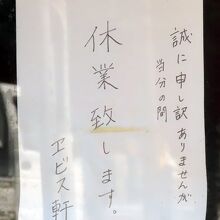 誠に申し訳ありませんが
当分の間
休業致します。
ヱビス軒